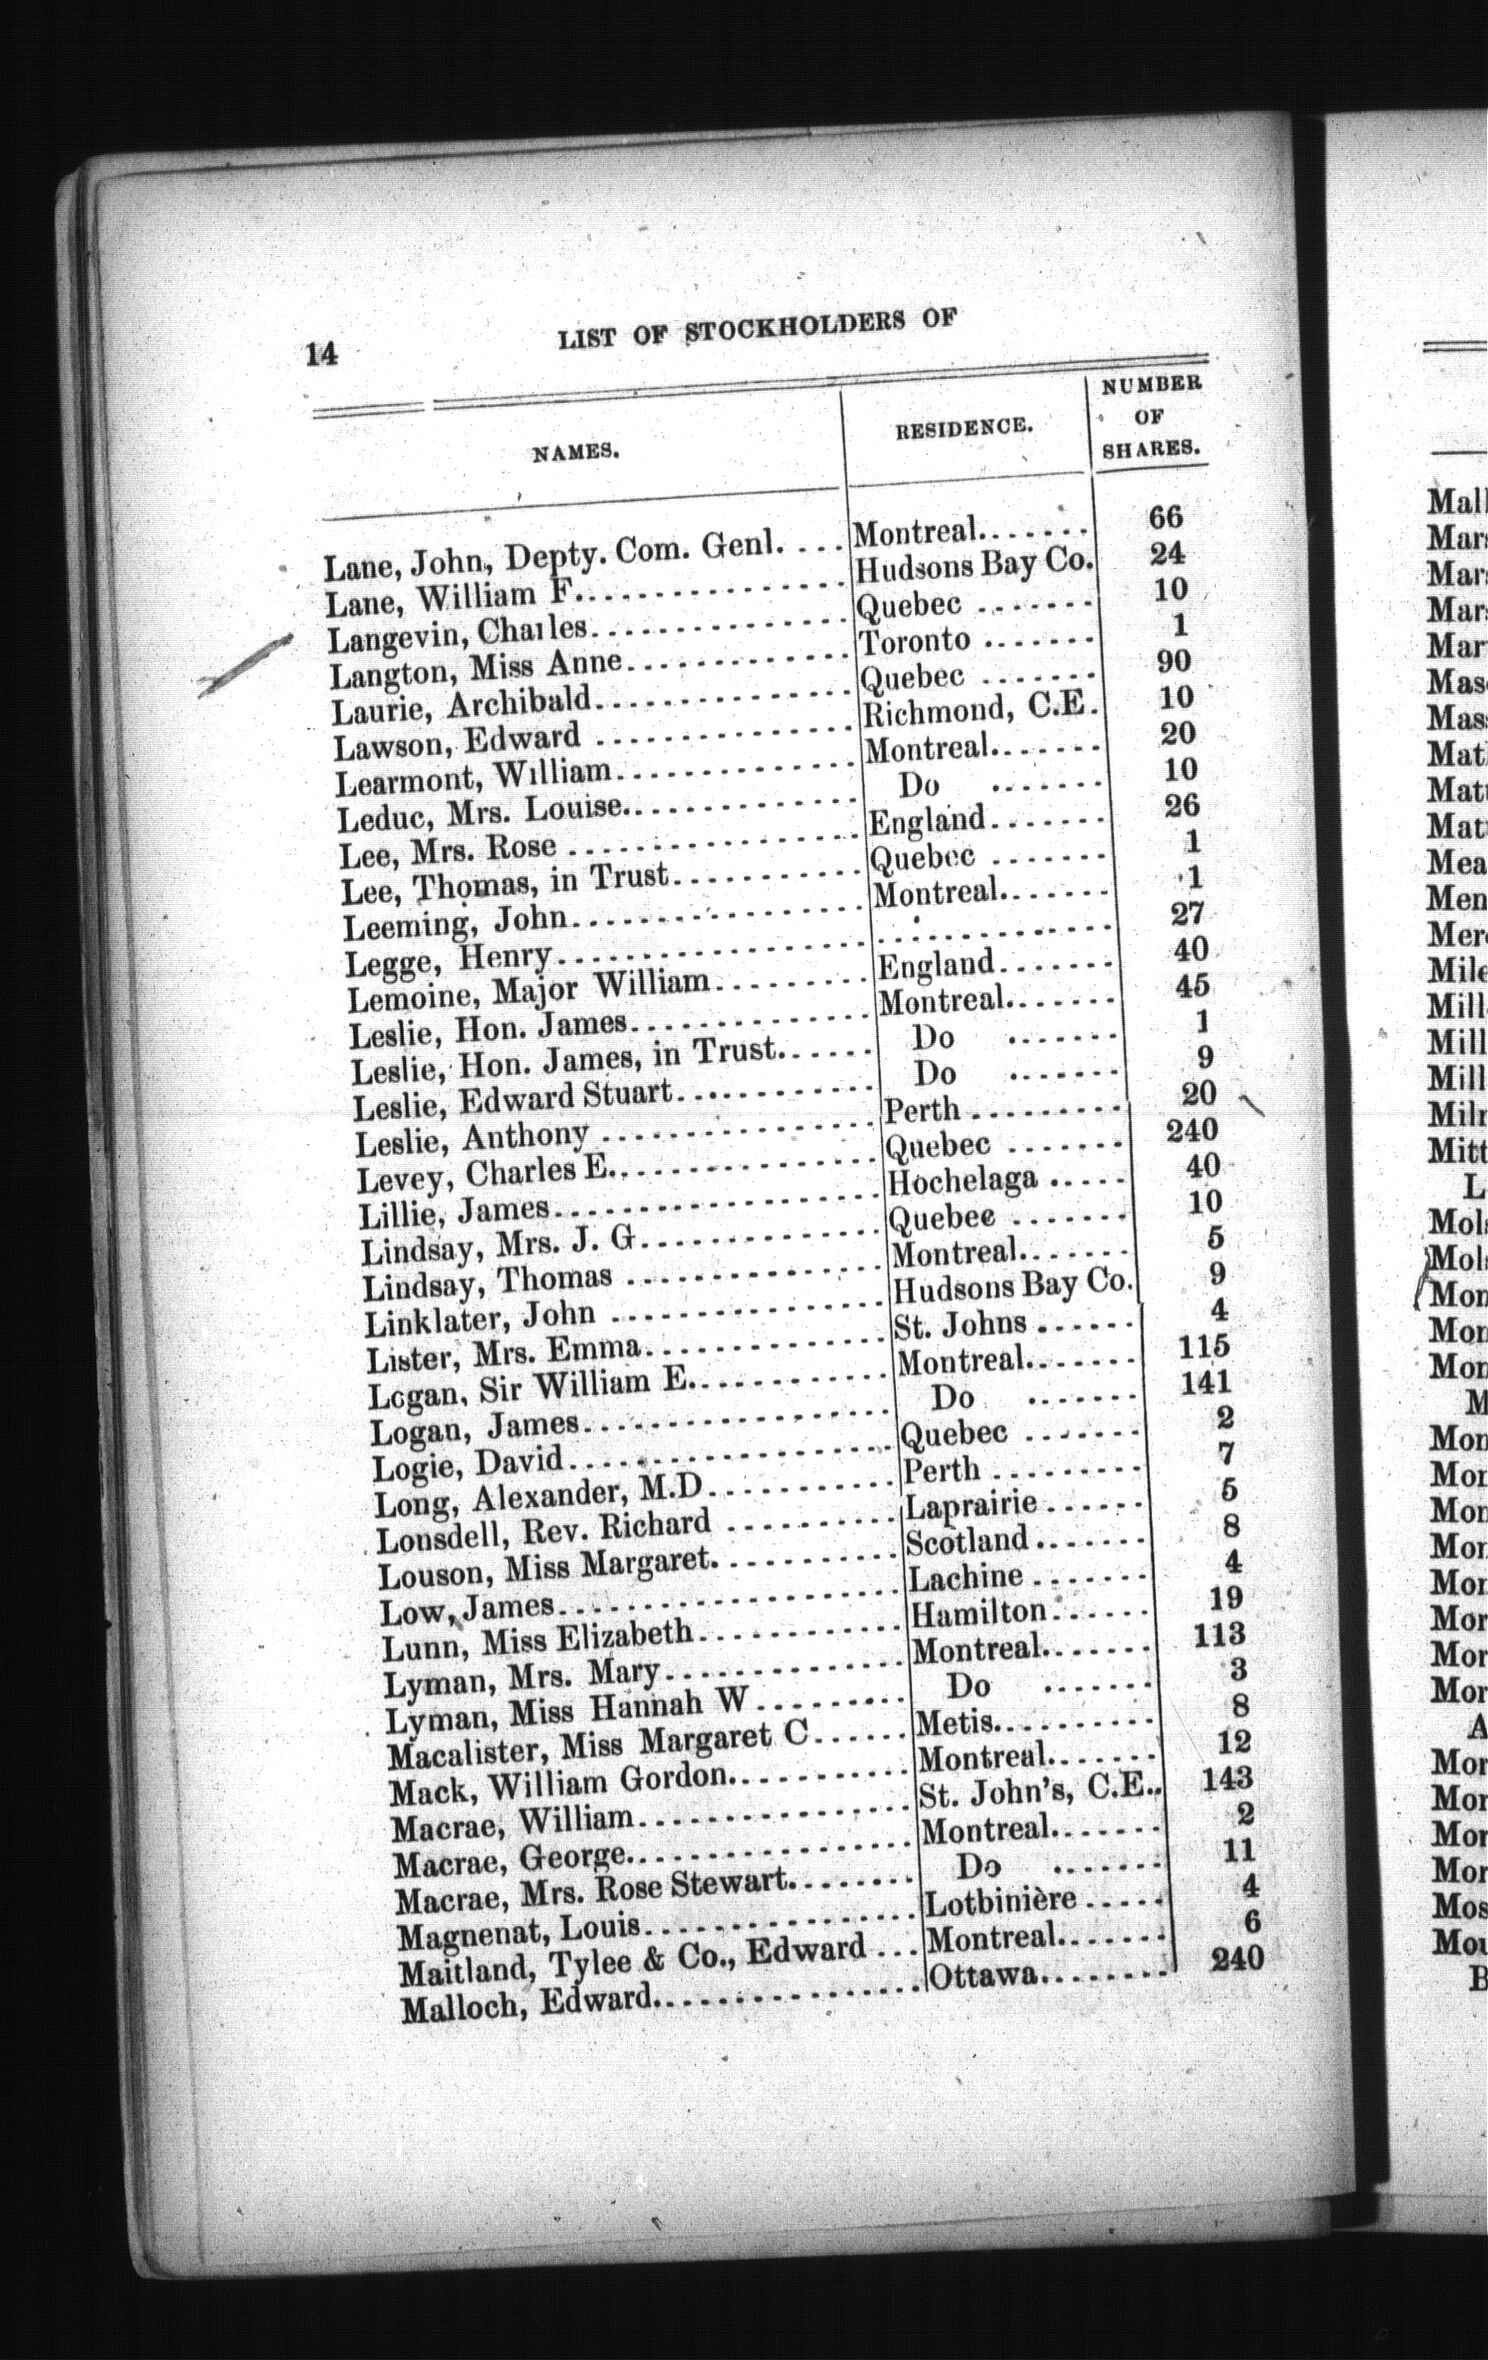 14 LIST OF STOCKHOLDERS OF
NAMES. RESIDENCE. NUMBER OF SHARES.
Lane, John, Depty. Com. Genl. .... Montreal........ 66
Lane, William F................ Hudsons Bay Co. 24
Langevin, Charles............... Quebec ........ 10
Langton, Miss Anne............. Toronto ....... 1
Laurie, Archibald............... Quebec ........ 90
Lawson, Edward ............... Richmond, C.E. 10
Learmont, William.............. Montreal........ 20
Leduc, Mrs. Louise.............. Do ....... 10
Lee, Mrs. Rose ................ England........ 26
Lee, Thomas, in Trust........... Quebec ........ 1
Leeming, John................. Montreal........ 1
Legge, Henry.................. .............. 27
Lemoine, Major William......... England........ 40
Leslie, Hon. James.............. Montreal........ 45
Leslie, Hon. James, in Trust...... Do ....... 1
Leslie, Edward Stuart............ Do ....... 9
Leslie, Anthony ................ Perth ......... 20
Levey, Charles E................ Quebec ....... 240
Lillie, James................... Hochelaga ..... 40
Lindsay, Mrs. J. G.............. Quebec ....... 10
Lindsay, Thomas ............... Montreal........ 5
Linklater, John ................ Hudsons Bay Co. 9
Lister, Mrs. Emma.............. St. Johns ...... 4
Logan, Sir William E............ Montreal........ 115
Logan, James.................. Do ....... 141
Logie, David................... Quebec ....... 2
Long, Alexander, M.D........... Perth ......... 7
Lonsdell, Rev. Richard .......... Laprairie ...... 5
Louson, Miss Margaret........... Scotland....... 8
Low, James.................... Lachine ....... 4
Lunn, Miss Elizabeth............ Hamilton...... 19
Lyman, Mrs. Mary.............. Montreal....... 113
Lyman, Miss Hannah W......... Do ....... 3
Macalister, Miss Margaret C...... Metis.......... 8
Mack, William Gordon........... Montreal....... 12
Macrae, William................ St. John's, C.E.. 143
Macrae, George................. Montreal....... 2
Macrae, Mrs. Rose Stewart........ Do ....... 11
Magnenat, Louis................ Lotbinière ..... 4
Maitland, Tylee & Co., Edward ... Montreal....... 6
Malloch, Edward................ Ottawa........ 240